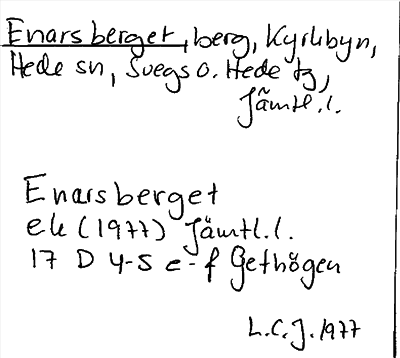 Enarsberget, berg, Kyrkbyn,
Hede sn, Svegs o. Hede tg,
Jämtl. l.
Enarsberget
ek (1977) Jämtl. l.
17 D 4-5 e-f Gethögen
L.C.J. 1977